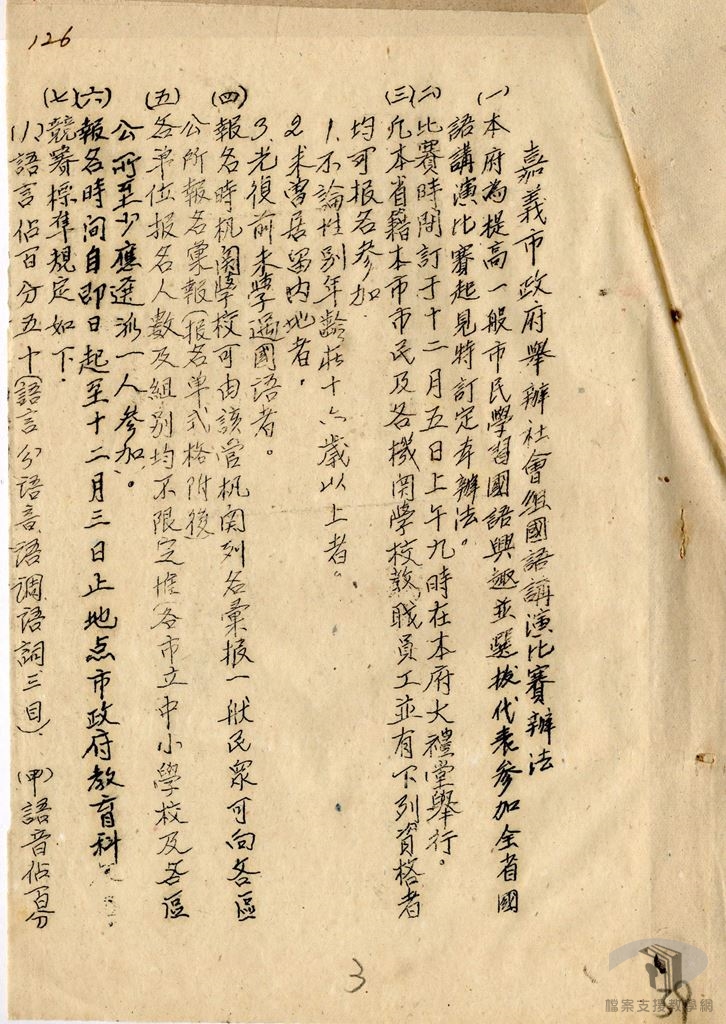 126
嘉義市政府舉辦社會組國語講演比賽辦法
(一)本府為提高一般市民學習國語興趣並選拔代表參加全省國
語講演比賽起見特訂定本辦法。
(二)比賽時間訂于十二月五日上午九時在本府大禮堂舉行。
(三)凡本省籍本市市民及各機関學校教職員工並有下列資格者
均可报名参加
1.不論性别年齡在十六歲以上者。
2.未曾居留内地者。
3.光復前未學過國語者。
(四)報名時机関學校可由該管机関列名彙报一般民眾可向各區
公所報名彙報(报名单式格附後)
(五)各单位报名人數及組别均不限定惟各市立中小學校及各區
公所至少應選派一人參加。
(六)報名時间自即日起至十二月三日止地点市政府教育科
(七)競賽標準規定如下.
(1)語言佔百分五十(語言分語音語調語詞三目)(甲)語音佔百分
3
39
檔案支援教學網